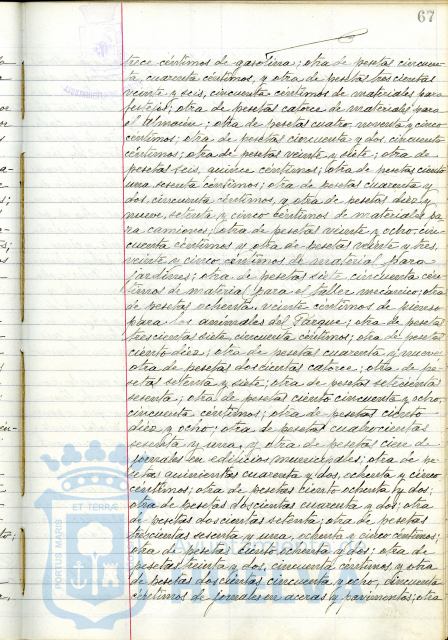 67
trece céntimos de gasolina; otra de pesetas cincuen-
ta, cuarenta céntimos, y otra de pesetas trescientas
veinte y seis, cincuenta céntimos de materiales para
festejos; otra de pesetas catorce de materiales para
el Almacén; otra de pesetas cuatro, noventa y cinco
céntimos; otra de pesetas cincuenta y dos, cincuenta
céntimos; otra de pesetas veinte y siete; otra de
pesetas seis, quince céntimos; otra de pesetas ciento
una, setenta céntimos; otra de pesetas cuarenta y
dos, cincuenta céntimos, y otra de pesetas diez y
nueve, setenta y cinco céntimos de materiales pa-
ra camiones; otra de pesetas veinte y ocho, cin-
cuenta céntimos y otra de pesetas veinte y tres,
veinte y cinco céntimos de material para
jardines; otra de pesetas siete, cincuenta cén-
timos de material para el taller mecánico; otra
de pesetas ochenta, veinte céntimos de pienso
para los animales del Parque; otra de pesetas
trescientas siete, cincuenta céntimos; otra de pesetas
ciento diez; otra de pesetas cuarenta y nueve;
otra de pesetas doscientas catorce; otra de pe-
setas setenta y siete; otra de pesetas setecientas
sesenta; otra de pesetas ciento cincuenta y ocho,
cincuenta céntimos; otra de pesetas ciento
diez y ocho; otra de pesetas cuatrocientas
sesenta y una, y otra de pesetas cien de
jornales en edificios municipales; otra de pe-
setas quinientas cuarenta y dos, ochenta y cinco
céntimos; otra de pesetas ciento ochenta y dos;
otra de pesetas doscientas cuarenta y dos; otra
de pesetas doscientas setenta; otra de pesetas
trescientas sesenta y una, ochenta y cinco céntimos;
otra de pesetas ciento ochenta y dos; otra de
pesetas treinta y dos, cincuenta céntimos, y otra
de pesetas doscientas cincuenta y ocho, cincuenta
céntimos de jornales en aceras y pavimentos; otra
ET TERRÆ
PORTUS MARIS